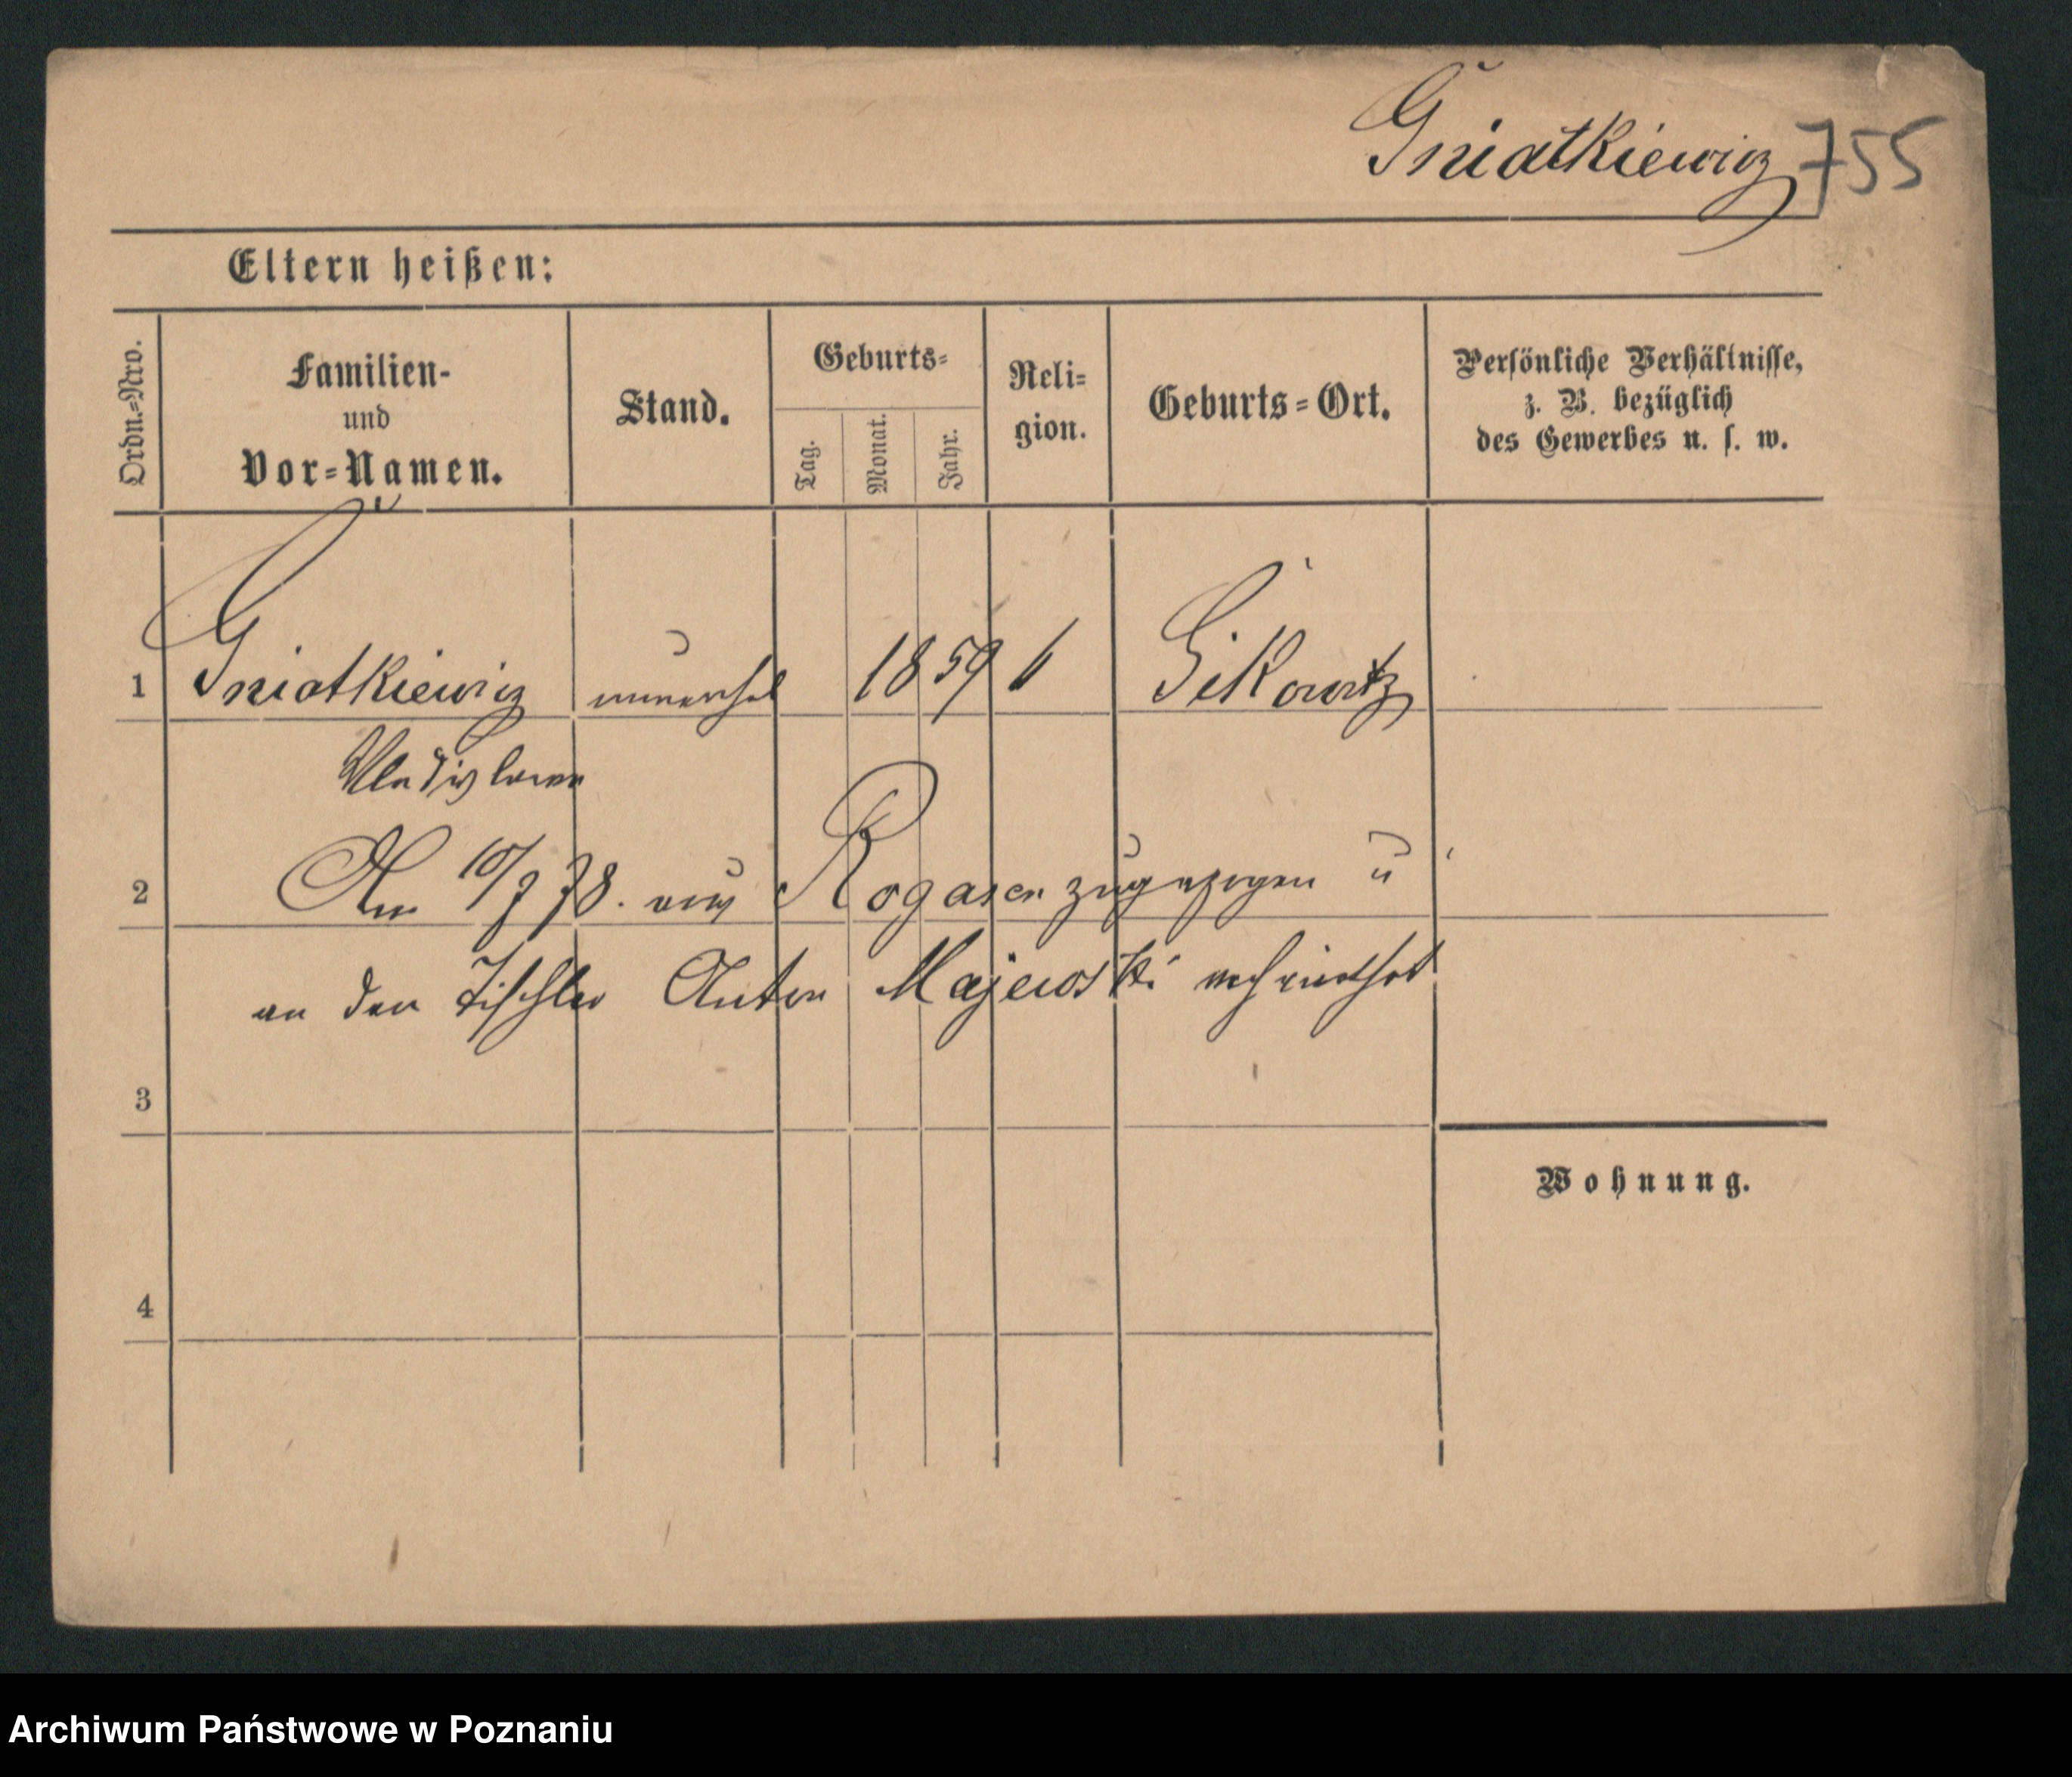 Gniatkiewicz 755
Eltern heißen:
Ordn.=Nro.
Familien-
und
Vor=Namen.
Stand.
Geburts=
Tag.
Monat.
Jahr.
Reli=
gion.
Geburts=Ort.
Persönliche Verhältnisse,
z. B. bezüglich
des Gewerbes u. s. w.
1 Gniatkiewicz unverh 1859 k
Wladislawa
2 Am 10/7 78. aus Rogasen zugezogen u
an den Tischler Anton Majewski verheirathet
3
Wohnung.
4
Archiwum Państwowe w Poznaniu